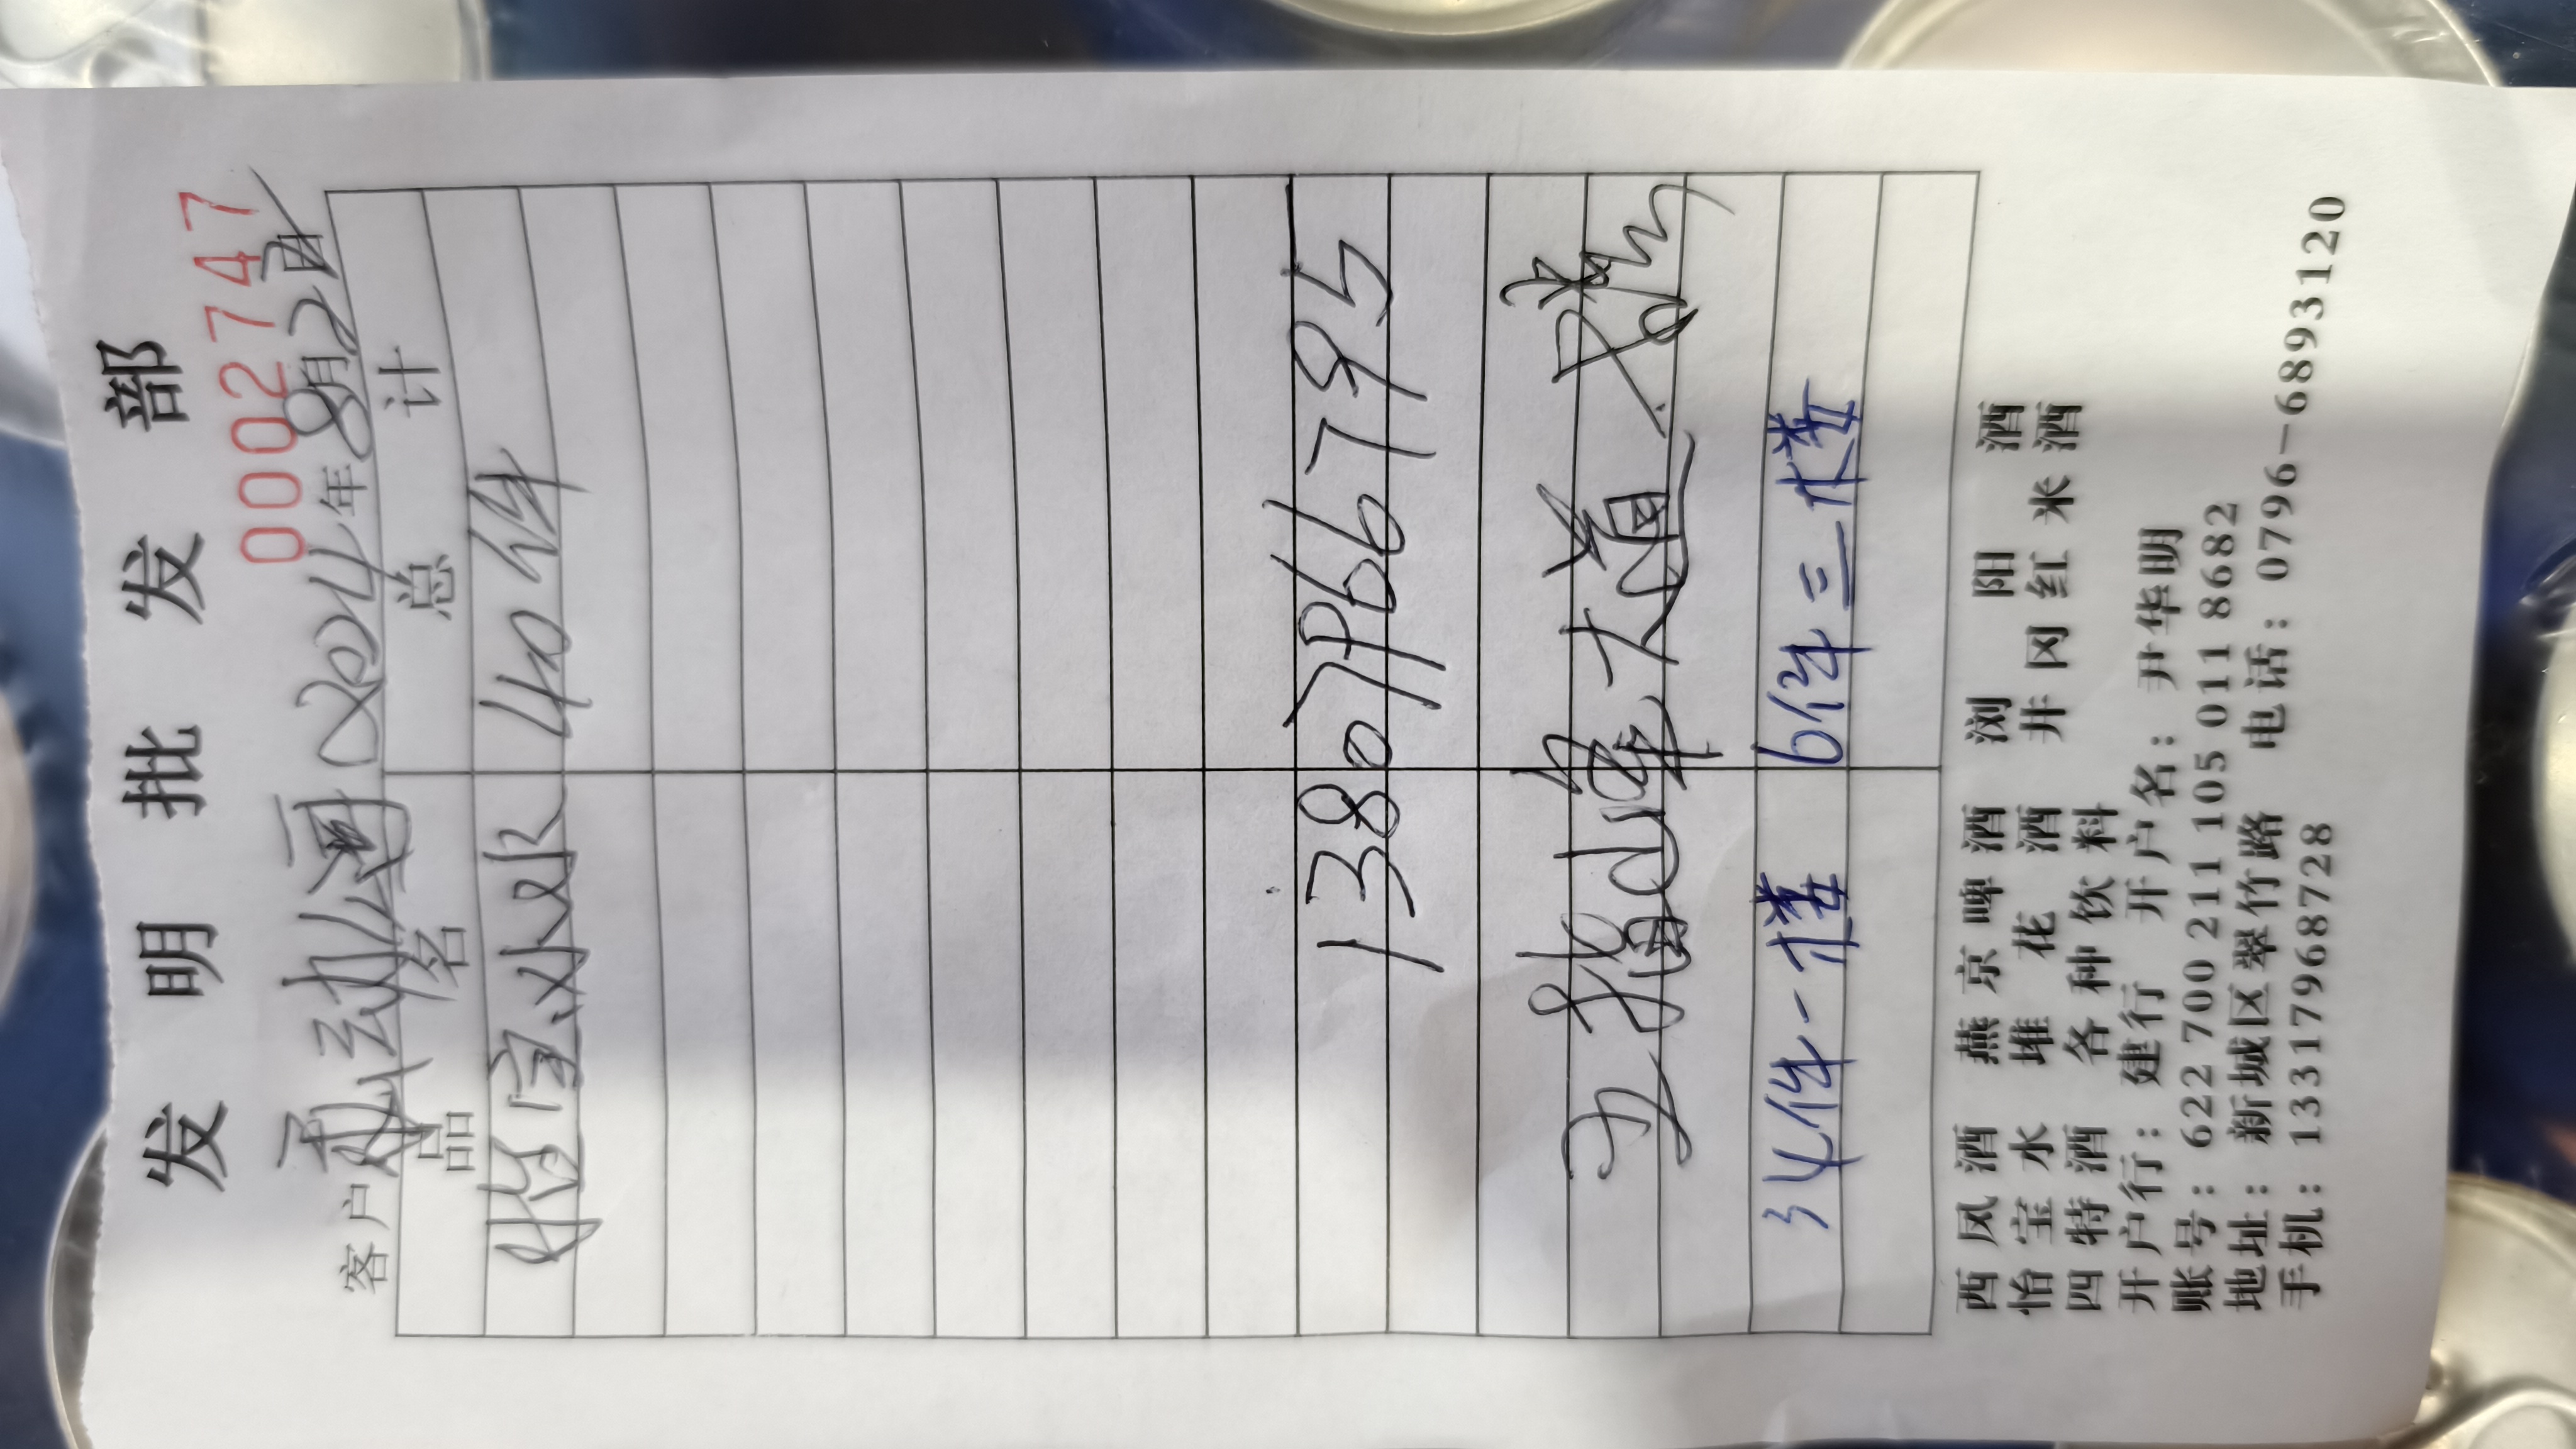 发明批发部
0002747
客户 移动公司 2024年8月2日
品名 总计
怡宝水 40件
13807966795
五指峰大道
34件一楼 6件三楼
西凤酒 燕京啤酒 浏阳酒
怡宝水 堆花酒 井冈红米酒
四特酒 各种饮料
开户行：建行 开户名：尹华明
账号：622 700 211 105 011 8682
地址：新城区翠竹路 电话：0796-6893120
手机：13317968728